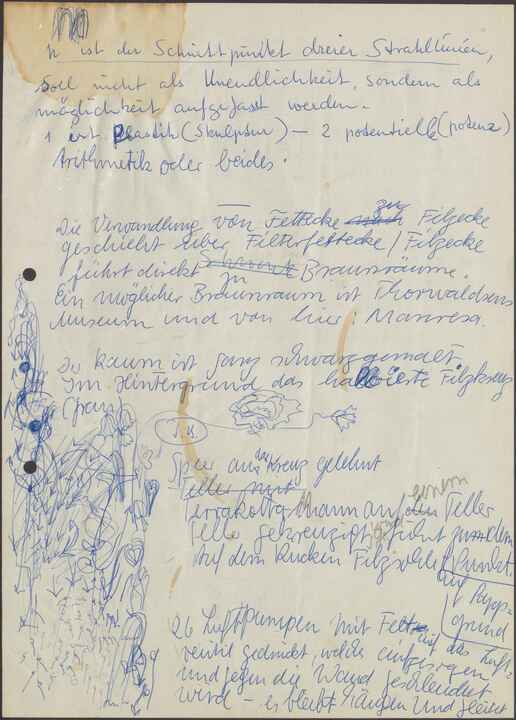 ist der Schnittpunkt dreier Strahllinien,
soll nicht als Unendlichkeit, sondern als
möglichkeit aufgefasst werden.
1 ist Plastik (Skulptur) — 2 potentiell (potenz)
Arithmetik oder beides.
Die Verwandlung von Fettecke zu Filzecke
geschieht über Filterfettecke / Filzecke
führt direkt zu Braunräume.
Ein möglicher Braunraum ist Thorwaldsens
Museum und von hier: Manresa.
Der Raum ist ganz schwarz gemalt
Im Hintergrund das halbierte Filzkreuz
(
Speer an das Kreuz gelehnt
Teller mit
mann auf einem Teller
gekreuzigt führt zu dem
Auf dem Rücken Filzsohle
auf Papp-
grund
26 Luftpumpen mit Fett auf das Luft-
ventil gedrückt, welche aufgesogen
und gegen die Wand geschleudert
wird — es bleibt hängen und gleitet